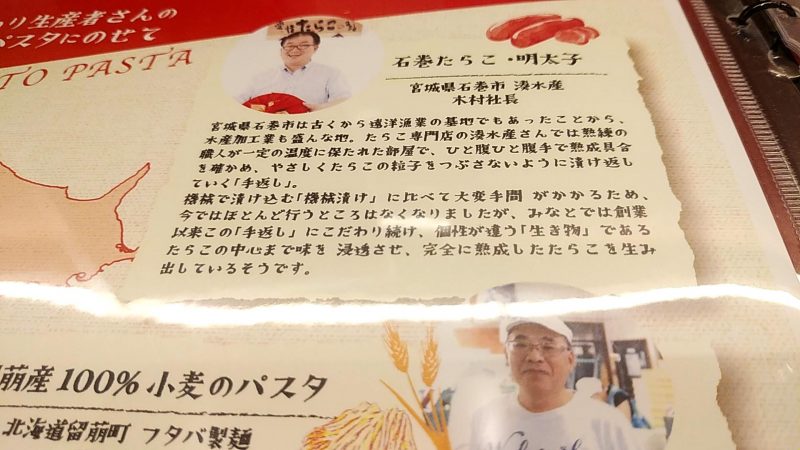 わり生産者さんの
パスタにのせて
TO PASTA
たらこ
石巻たらこ・明太子
宮城県石巻市 湊水産
木村社長
宮城県石巻市は古くから遠洋漁業の基地でもあったことから、
水産加工業も盛んな地。たらこ専門店の湊水産さんでは熟練の
職人が一定の温度に保たれた部屋で、ひと腹ひと腹手で熟成具合
を確かめ、やさしくたらこの粒子をつぶさないように漬け返し
ていく「手返し」。
機械で漬け込む「機械漬け」に比べて大変手間 がかかるため、
今ではほとんど行うところはなくなりましたが、みなとでは創業
以来この「手返し」にこだわり続け、個性が違う「生き物」である
たらこの中心まで味を 浸透させ、完全に熟成したたらこを生み
出しているそうです。
萌産100%小麦のパスタ
北海道留萌町 フタバ製麺